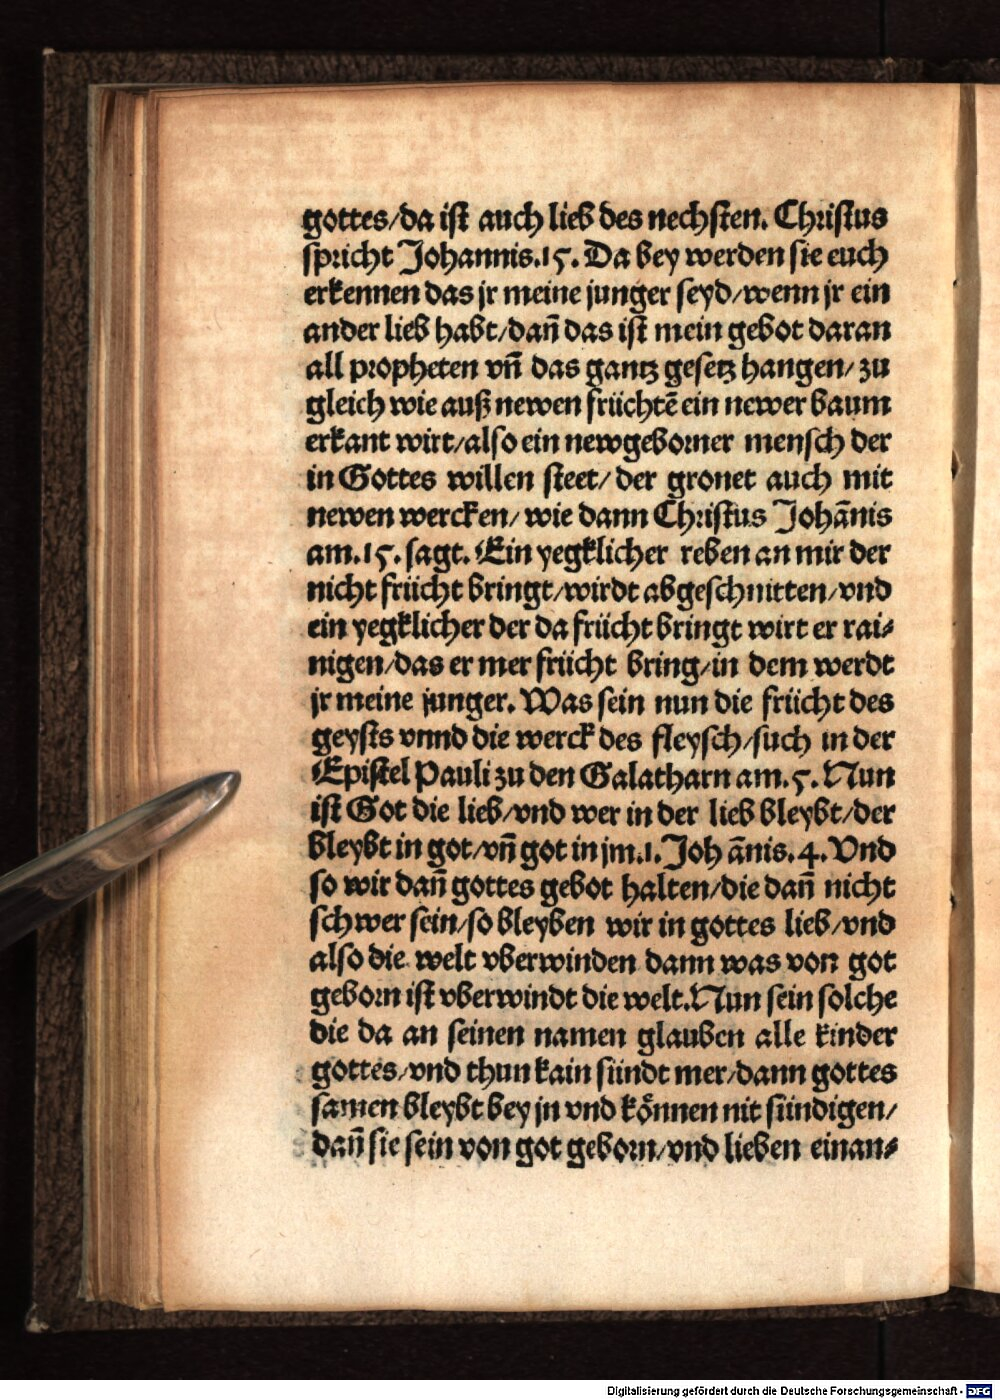 gottes/da ist auch lieb des nechsten. Christus
spricht Johannis.15. Da bey werden sie euch
erkennen das jr meine junger seyd/wenn jr ein
ander lieb habt/dañ das ist mein gebot daran
all propheten vñ das gantz gesetz hangen/zu
gleich wie auß newen früchtē ein newer baum
erkant wirt/also ein newgeborner mensch der
in Gottes willen steet/der gronet auch mit
newen wercken/wie dann Christus Johānis
am.15.sagt. Ein yegklicher reben an mir der
nicht frücht bringt/wirdt abgeschnitten/vnd
ein yegklicher der da frücht bringt wirt er rai-
nigen/das er mer frücht bring/in dem werdt
jr meine junger. Was sein nun die frücht des
geysts vnnd die werck des fleysch/such in der
Epistel Pauli zu den Galatharn am.5. Nun
ist Got die lieb/vnd wer in der lieb bleybt/der
bleybt in got/vñ got in jm.1. Joh ānis.4. Vnd
so wir dañ gottes gebot halten/die dañ nicht
schwer sein/so bleyben wir in gottes lieb/vnd
also die welt vberwinden dann was von got
geborn ist vberwindt die welt. Nun sein solche
die da an seinen namen glauben alle kinder
gottes/vnd thun kain sündt mer/dann gottes
samen bleybt bey jn vnd können nit sündigen/
dañ sie sein von got geborn/vnd lieben einan-
Digitalisierung gefördert durch die Deutsche Forschungsgemeinschaft - DFG